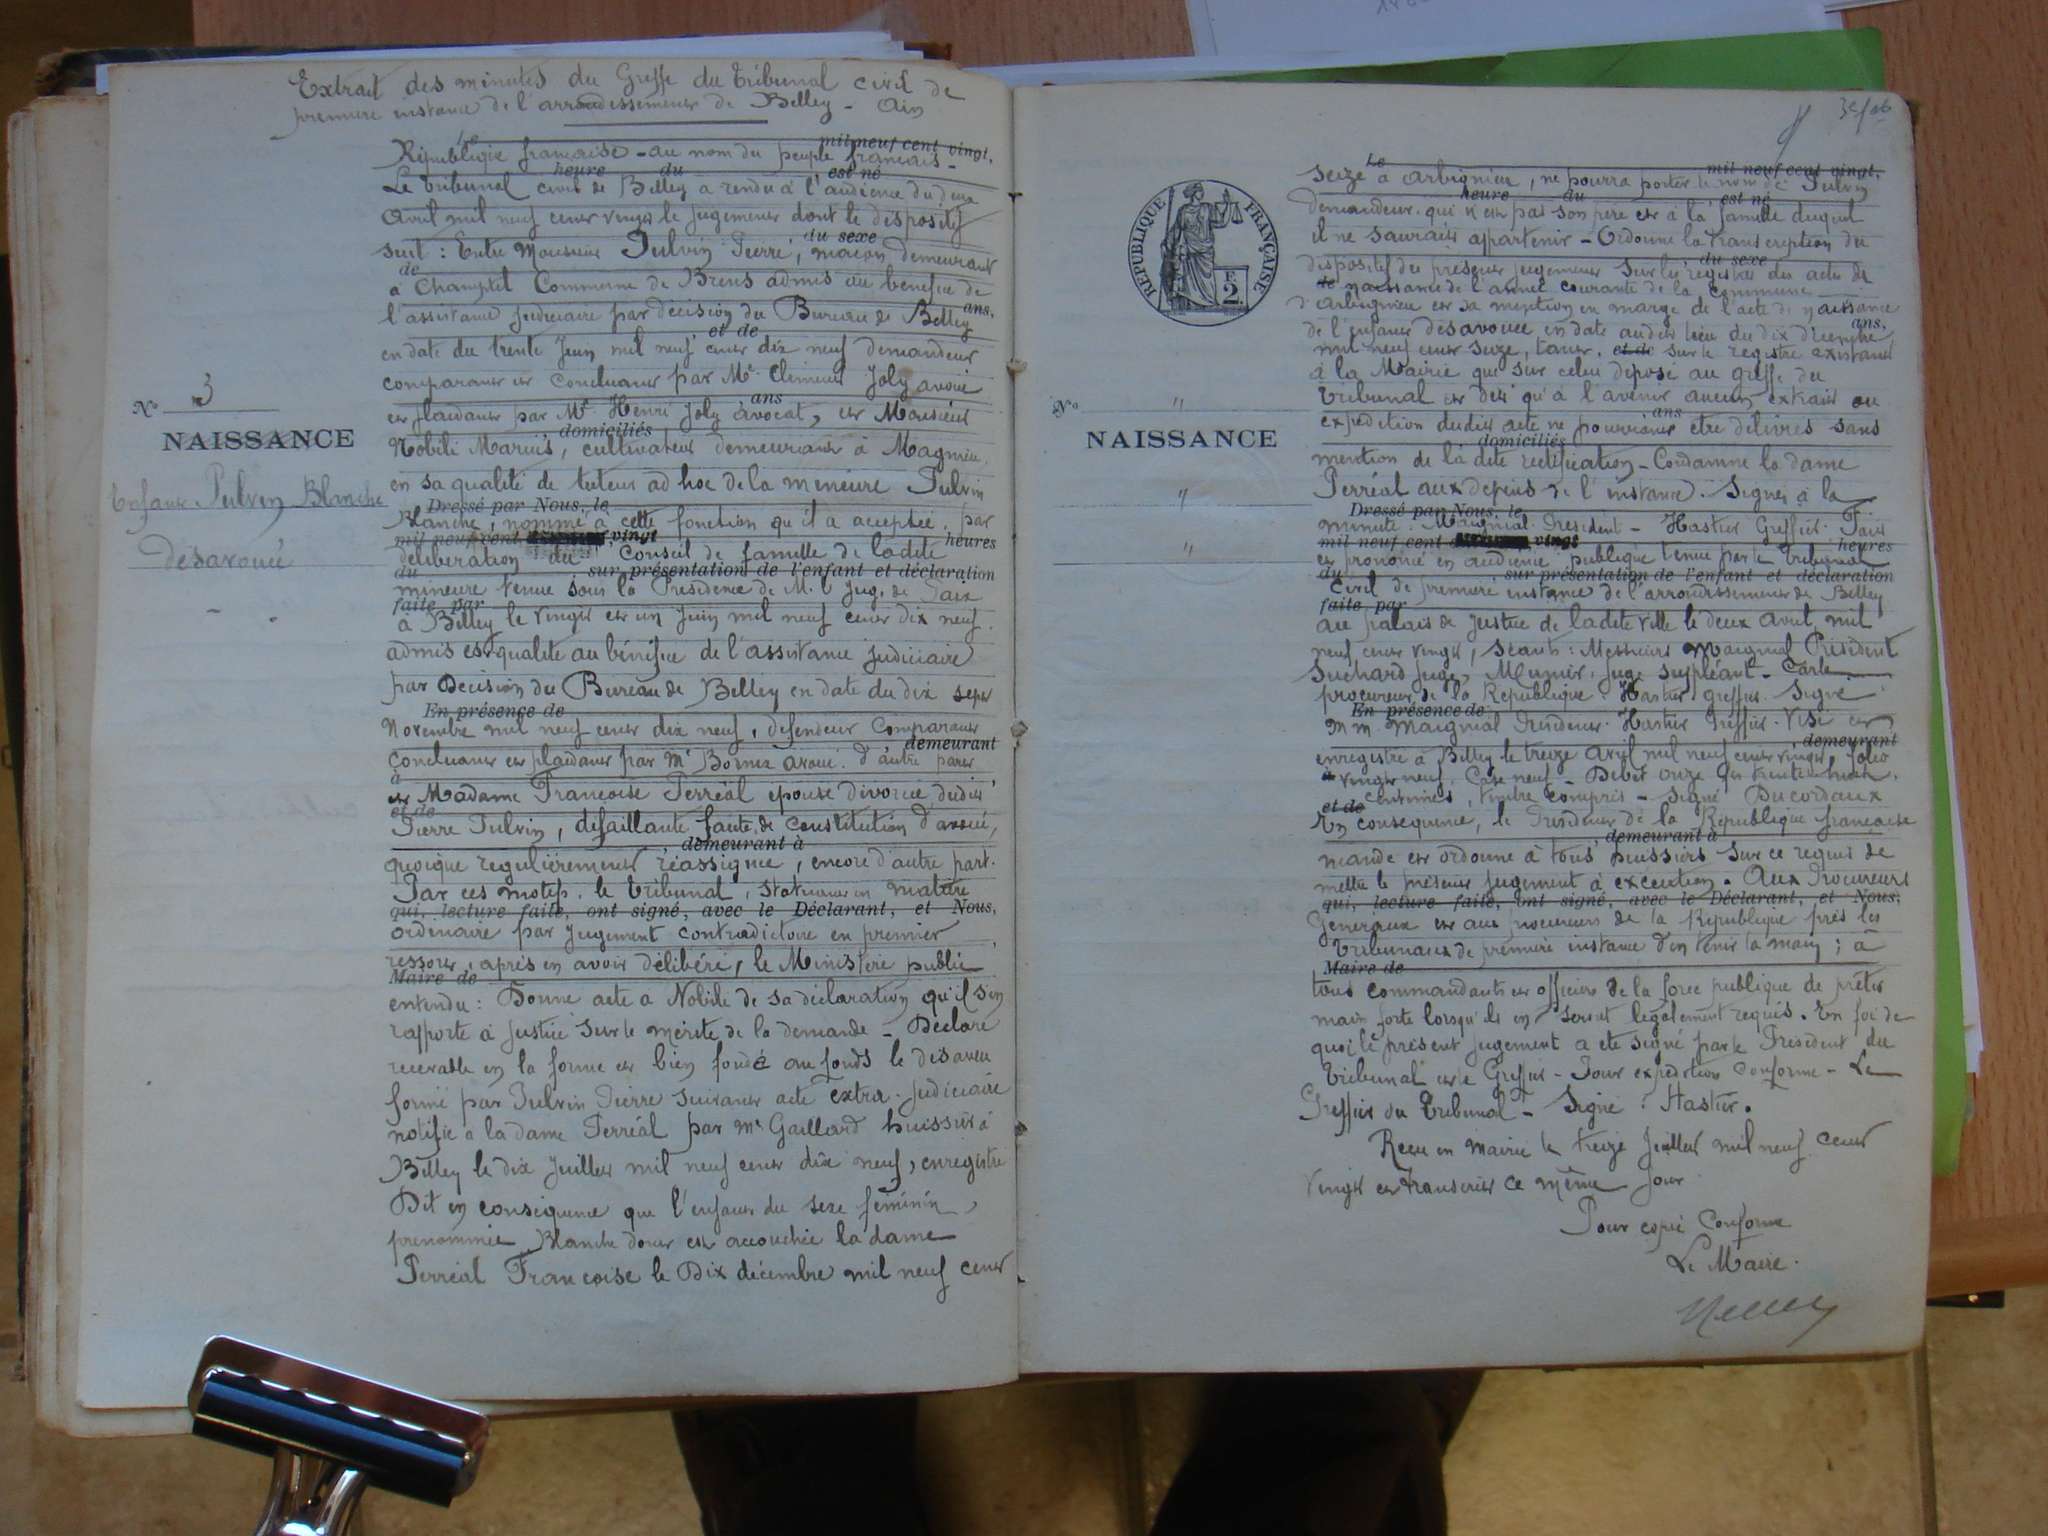 Extrait des minutes du Greffe du Tribunal civil de
première instance de l'arrondissement de Belley - Ain
Le mil neuf cent vingt,
République française - au nom du peuple français -
heure du est né
Le Tribunal civil de Belley a rendu à l'audience du deux
Avril mil neuf cent vingt le jugement dont le dispositif
du sexe
suit : Entre Monsieur Pulvin Pierre, maçon demeurant
de
à Champtel Commune de Brens admis au bénéfice de
ans,
l'assistance judiciaire par décision du Bureau de Belley
et de
en date du trente Juin mil neuf cent dix neuf demandeur
comparant et concluant par Me Clément Joly avoué
ans
et plaidant par Me Henri Joly avocat, et Monsieur
domiciliés
Nobile Marius, cultivateur demeurant à Magnieu,
en sa qualité de tuteur ad hoc de la mineure Pulvin
Dressé par Nous, le
Blanche, nommé à cette fonction qu'il a acceptée, par
mil neuf cent vingt heures
délibération du Conseil de famille de ladite
du sur présentation de l'enfant et déclaration
mineure tenue sous la Présidence de M. le Juge de Paix
faite par
à Belley le vingt et un Juin mil neuf cent dix neuf.
admis es qualité au bénéfice de l'assistance judiciaire
par Décision du Bureau de Belley en date du dix sept
En présence de
Novembre mil neuf cent dix neuf, défendeur Comparant
demeurant
concluant et plaidant par Me Bornex avoué. d'autre part
à
et Madame Françoise Perréal épouse divorcée dudit
et de
Pierre Pulvin, défaillante faute de constitution d'avoué,
demeurant à
quoique régulièrement réassignée, encore d'autre part.
Par ces motifs, le Tribunal, statuant en matière
qui, lecture faite, ont signé, avec le Déclarant, et Nous,
ordinaire par jugement contradictoire en premier
ressort, après en avoir délibéré, le Ministère public
Maire de
entendu : Donne acte à Nobile de sa déclaration qu'il s'en
rapporte à justice sur le mérite de la demande - Déclare
recevable en la forme et bien fondé au fonds le désaveu
formé par Pulvin Pierre suivant acte Extra-Judiciaire
notifié à la dame Perréal par Me Gaillard huissier à
Belley le dix Juillet mil neuf cent dix neuf, enregistré
Dit en conséquence que l'enfant du sexe féminin,
prénommée Blanche dont est accouchée la dame
Perréal Françoise le Dix décembre mil neuf cent
No 3
NAISSANCE
Enfant Pulvin Blanche
désavoué
Le mil neuf cent vingt,
seize à Arbignieu, ne pourra porter le nom de Pulvin
heure du est né
demandeur, qui n'est pas son père et à la famille duquel
il ne saurait appartenir - Ordonne la transcription du
du sexe
dispositif du présent jugement sur les registres des actes de
de naissance de l'année courante de la commune
d'Arbignieu et sa mention en marge de l'acte de naissance
ans,
de l'enfant désavouée en date audit lieu du dix décembre
mil neuf cent seize, tant et de sur le registre existant
à la Mairie que sur celui déposé au greffe du
Tribunal et dit qu'à l'avenir aucun extrait ou
ans
expédition dudit acte ne pourront être délivrés sans
domiciliés
mention de la dite rectification - Condamne la dame
Perréal aux dépens de l'instance. Signés à la
Dressé par Nous, le
minute : Maignial Président - Hastier Greffier. Fait
mil neuf cent vingt heures
et prononcé en audience publique tenue par le Tribunal
du sur présentation de l'enfant et déclaration
Civil de première instance de l'arrondissement de Belley
faite par
au palais de Justice de ladite ville le deux Avril mil
neuf cent vingt, Séants : Messieurs Maignial Président
Suchard juge, Munier, juge suppléant - Carle
procureur de la République. Hastier greffier. Signé
En présence de
M.M. Maignial Président. Hastier Greffier. Visé et
demeurant
enregistré à Belley le treize Avril mil neuf cent vingt, folio
à vingt neuf, Case neuf - Débet onze frs trente huit
centimes, timbre compris - Signé Ducordaux
et de
En conséquence, le Président de la République française
demeurant à
mande et ordonne à tous huissiers sur ce requis de
mettre le présent jugement à exécution. Aux Procureurs
qui, lecture faite, ont signé, avec le Déclarant, et Nous,
Généraux et aux procureurs de la République près les
Tribunaux de première instance d'en tenir la main ; à
Maire de
tous commandants et officiers de la force publique de prêter
main forte lorsqu'ils en seront légalement requis. En foi de
quoi le présent jugement a été signé par le Président du
Tribunal et le Greffier - Pour expédition conforme - Le
Greffier du Tribunal - Signé : Hastier.
Reçu en Mairie le treize Juillet mil neuf cent
vingt et transcrit ce même jour
Pour copie Conforme
Le Maire.
RÉPUBLIQUE FRANÇAISE
F. 2.
No "
NAISSANCE
"
"